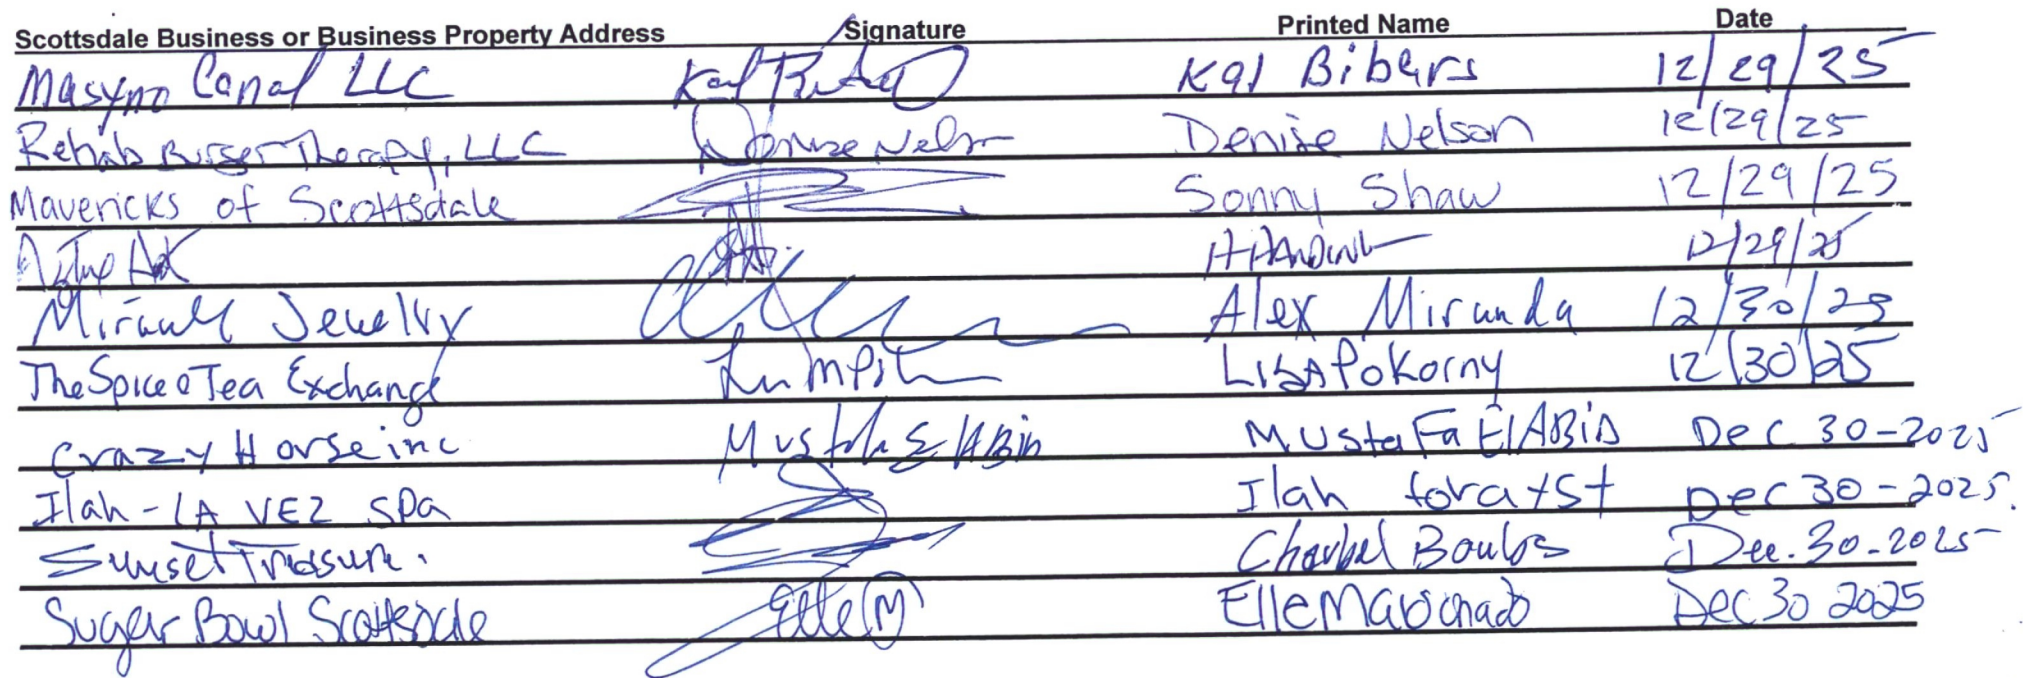 Scottsdale Business or Business Property Address Signature Printed Name Date
Canal LLC Kal Bibers 12/29/25
Rehab Burger Therapy, LLC Denise Nelson Denise Nelson 12/29/25
Mavericks of Scottsdale Sonny Shaw 12/29/25
12/29/25
Jewelry Alex Miranda 12/30/25
The Spice & Tea Exchange Lisa Pokorny 12/30/25
Crazy Horse inc Mustafa ElABiD Dec 30-2025
Ilah-LA VEZ SPa Ilah Dec 30-2025.
Sunset Treasure. Charbel Boulos Dec.30-2025
Sugar Bowl Scottsdale Elle (M) Elle Dec 30 2025